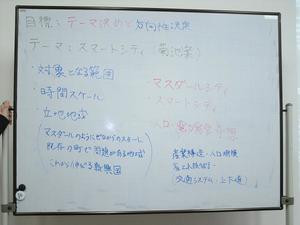 目標：テーマ決めと方向性決定
(テーマ：スマートシティ 菊池案)
・対象となる範囲
・時間スケール
・立地地域
(マスダールのようにゼロからのスタート
既存の町で問題がある地域
これから伸びる新興国)
マスダールシティ
スマートシティ
人口・電力
産業構造・人口規模
省エネ
(交通システム・上下水道)